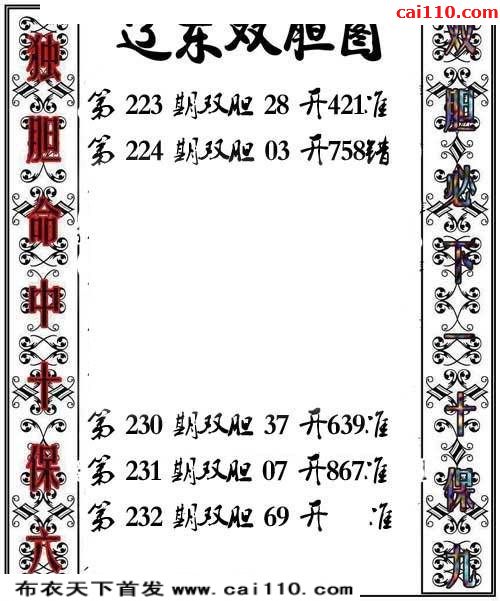 cai110.com
辽东双胆图
第 223 期双胆 28 开421准
第 224 期双胆 03 开758错
第 230 期双胆 37 开639准
第 231 期双胆 07 开867准
第 232 期双胆 69 开 准
独胆命中十保六
双胆必下一十保九
布衣天下首发 www.cai110.com